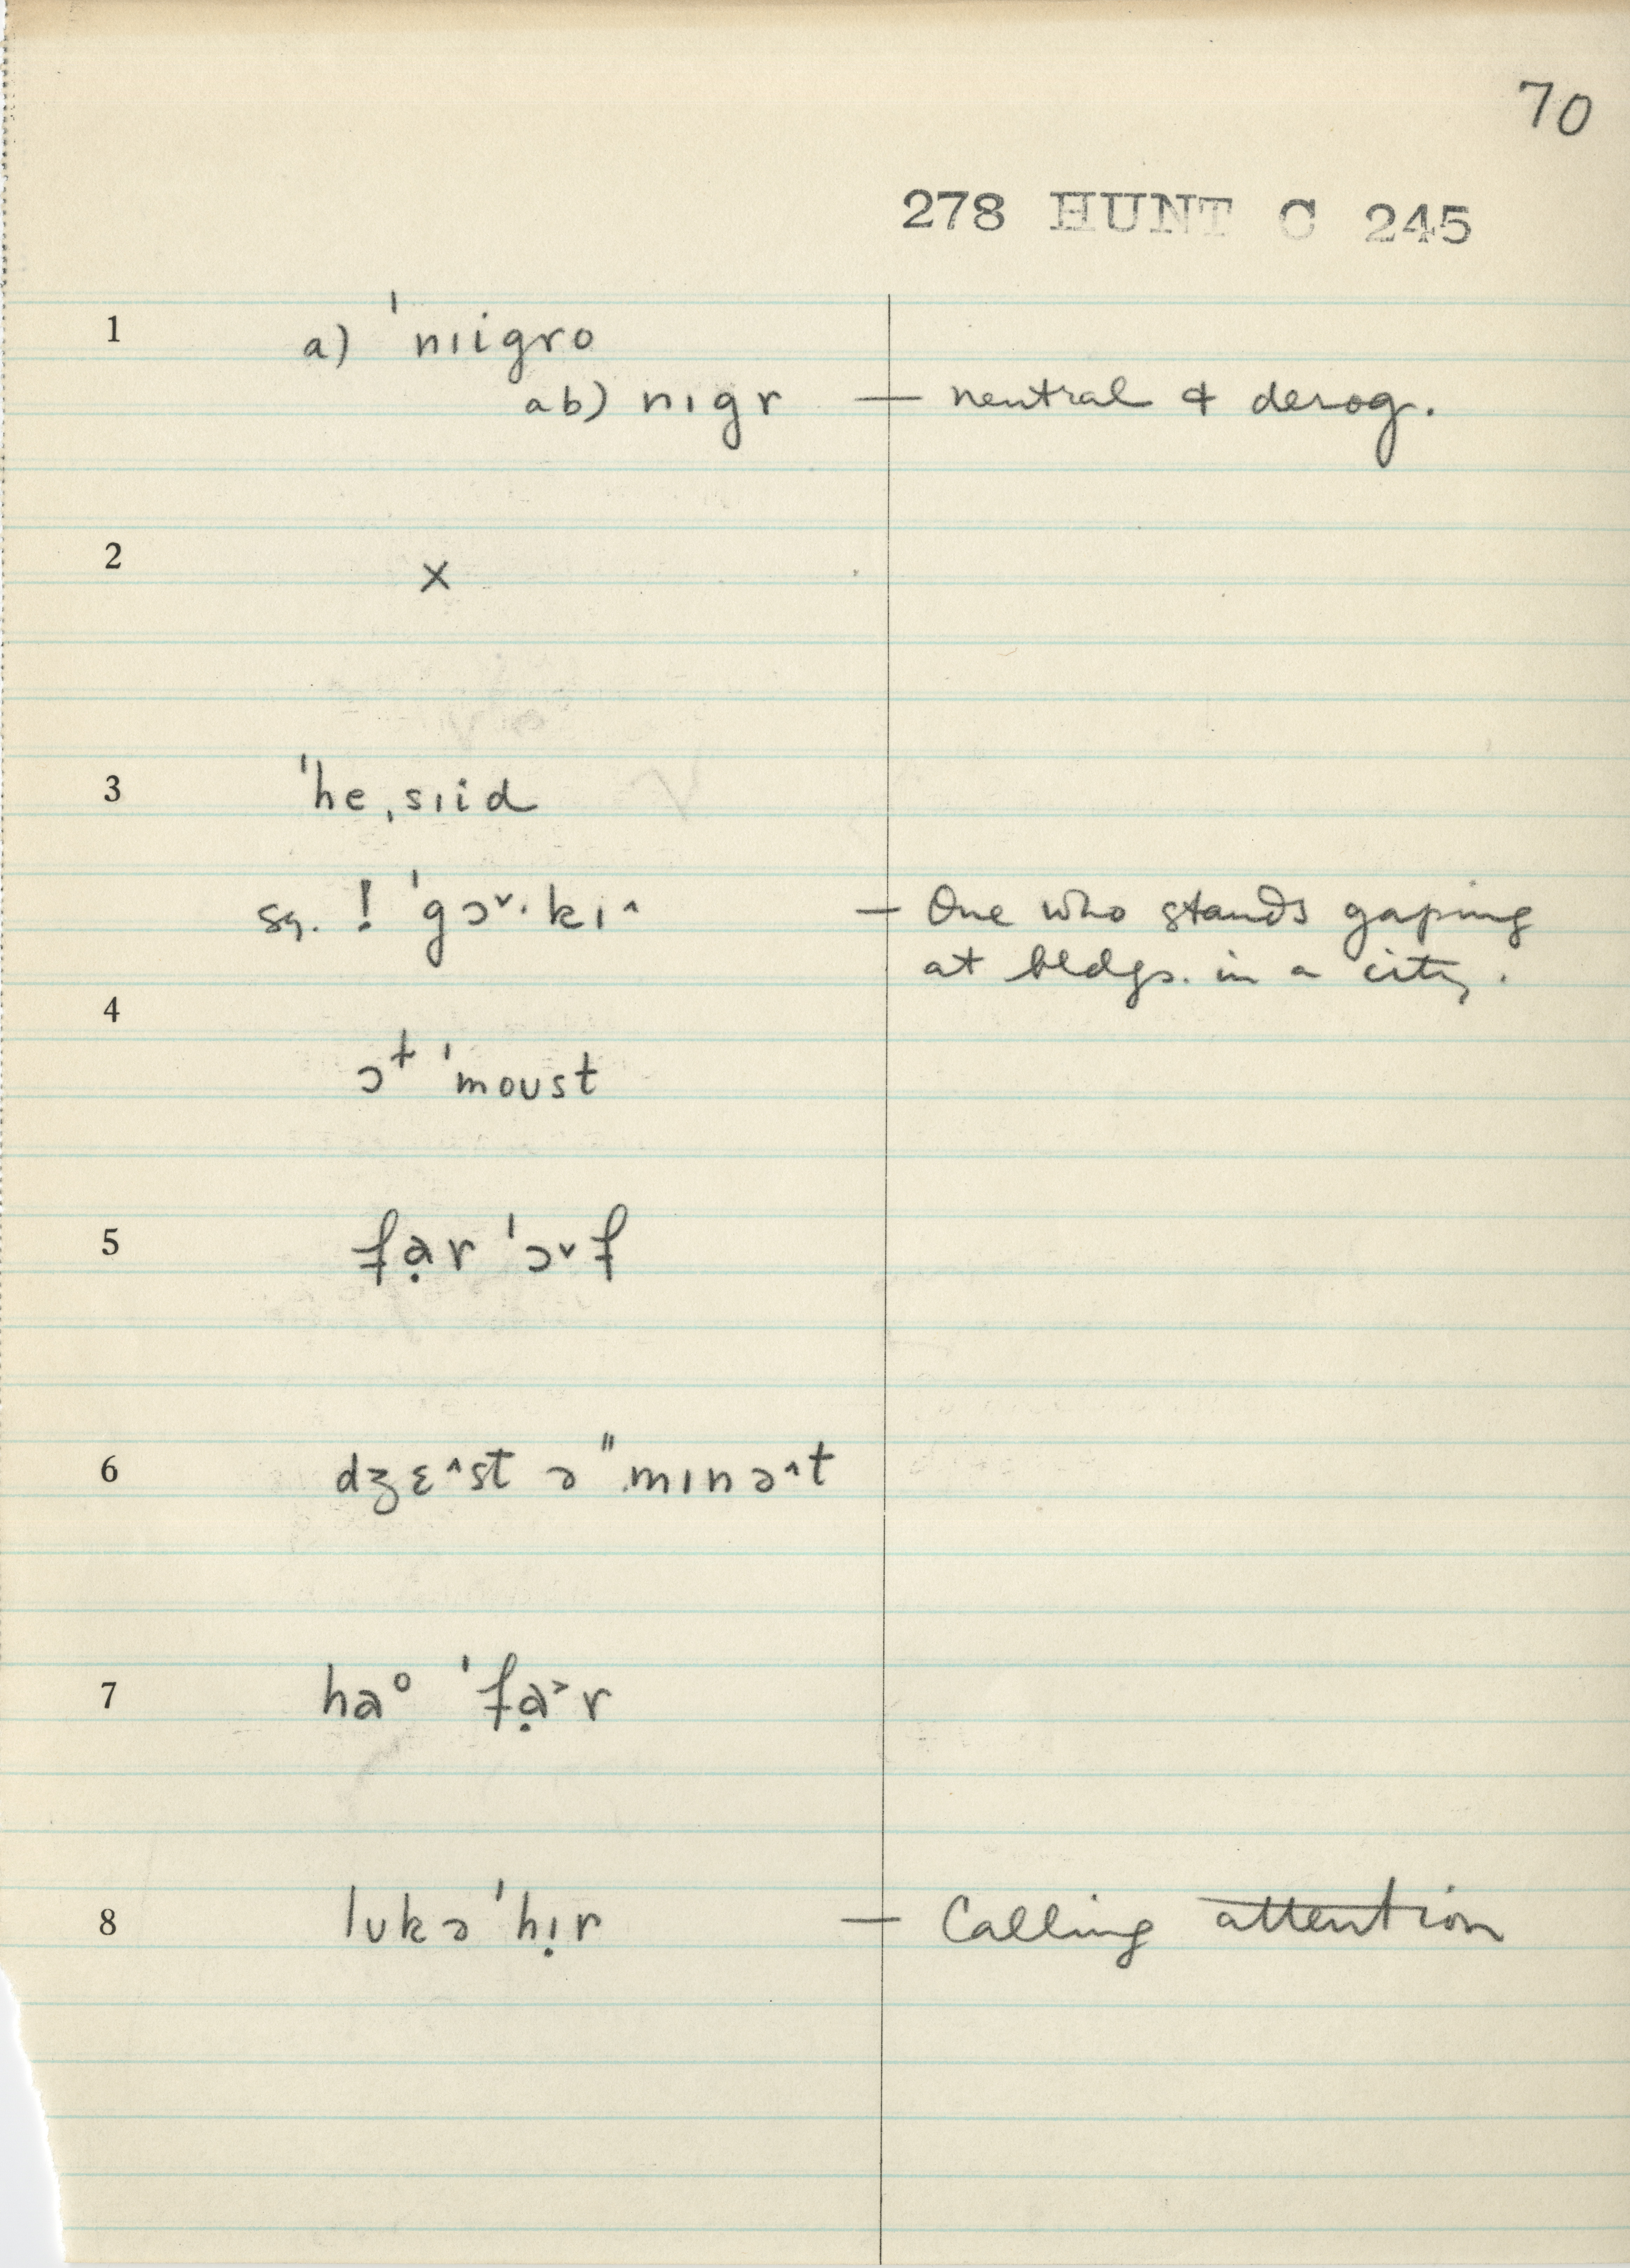 70
278 HUNT C 245
1 a) ˈnɪigro
ab) nɪgr — neutral & derog.
2 x
3 ˈhe ˌsɪid
sq. ! ˈgɔ˅·kɪ^ — One who stands gaping
at bldgs. in a city.
4
ɔɫ ˈmoust
5 fạr ˈɔ˅f
6 dʒɛ^st ə "mɪnə^t
7 haᵒ ˈfạ˃r
8 lʊkə ˈhɪ̣r — Calling attention